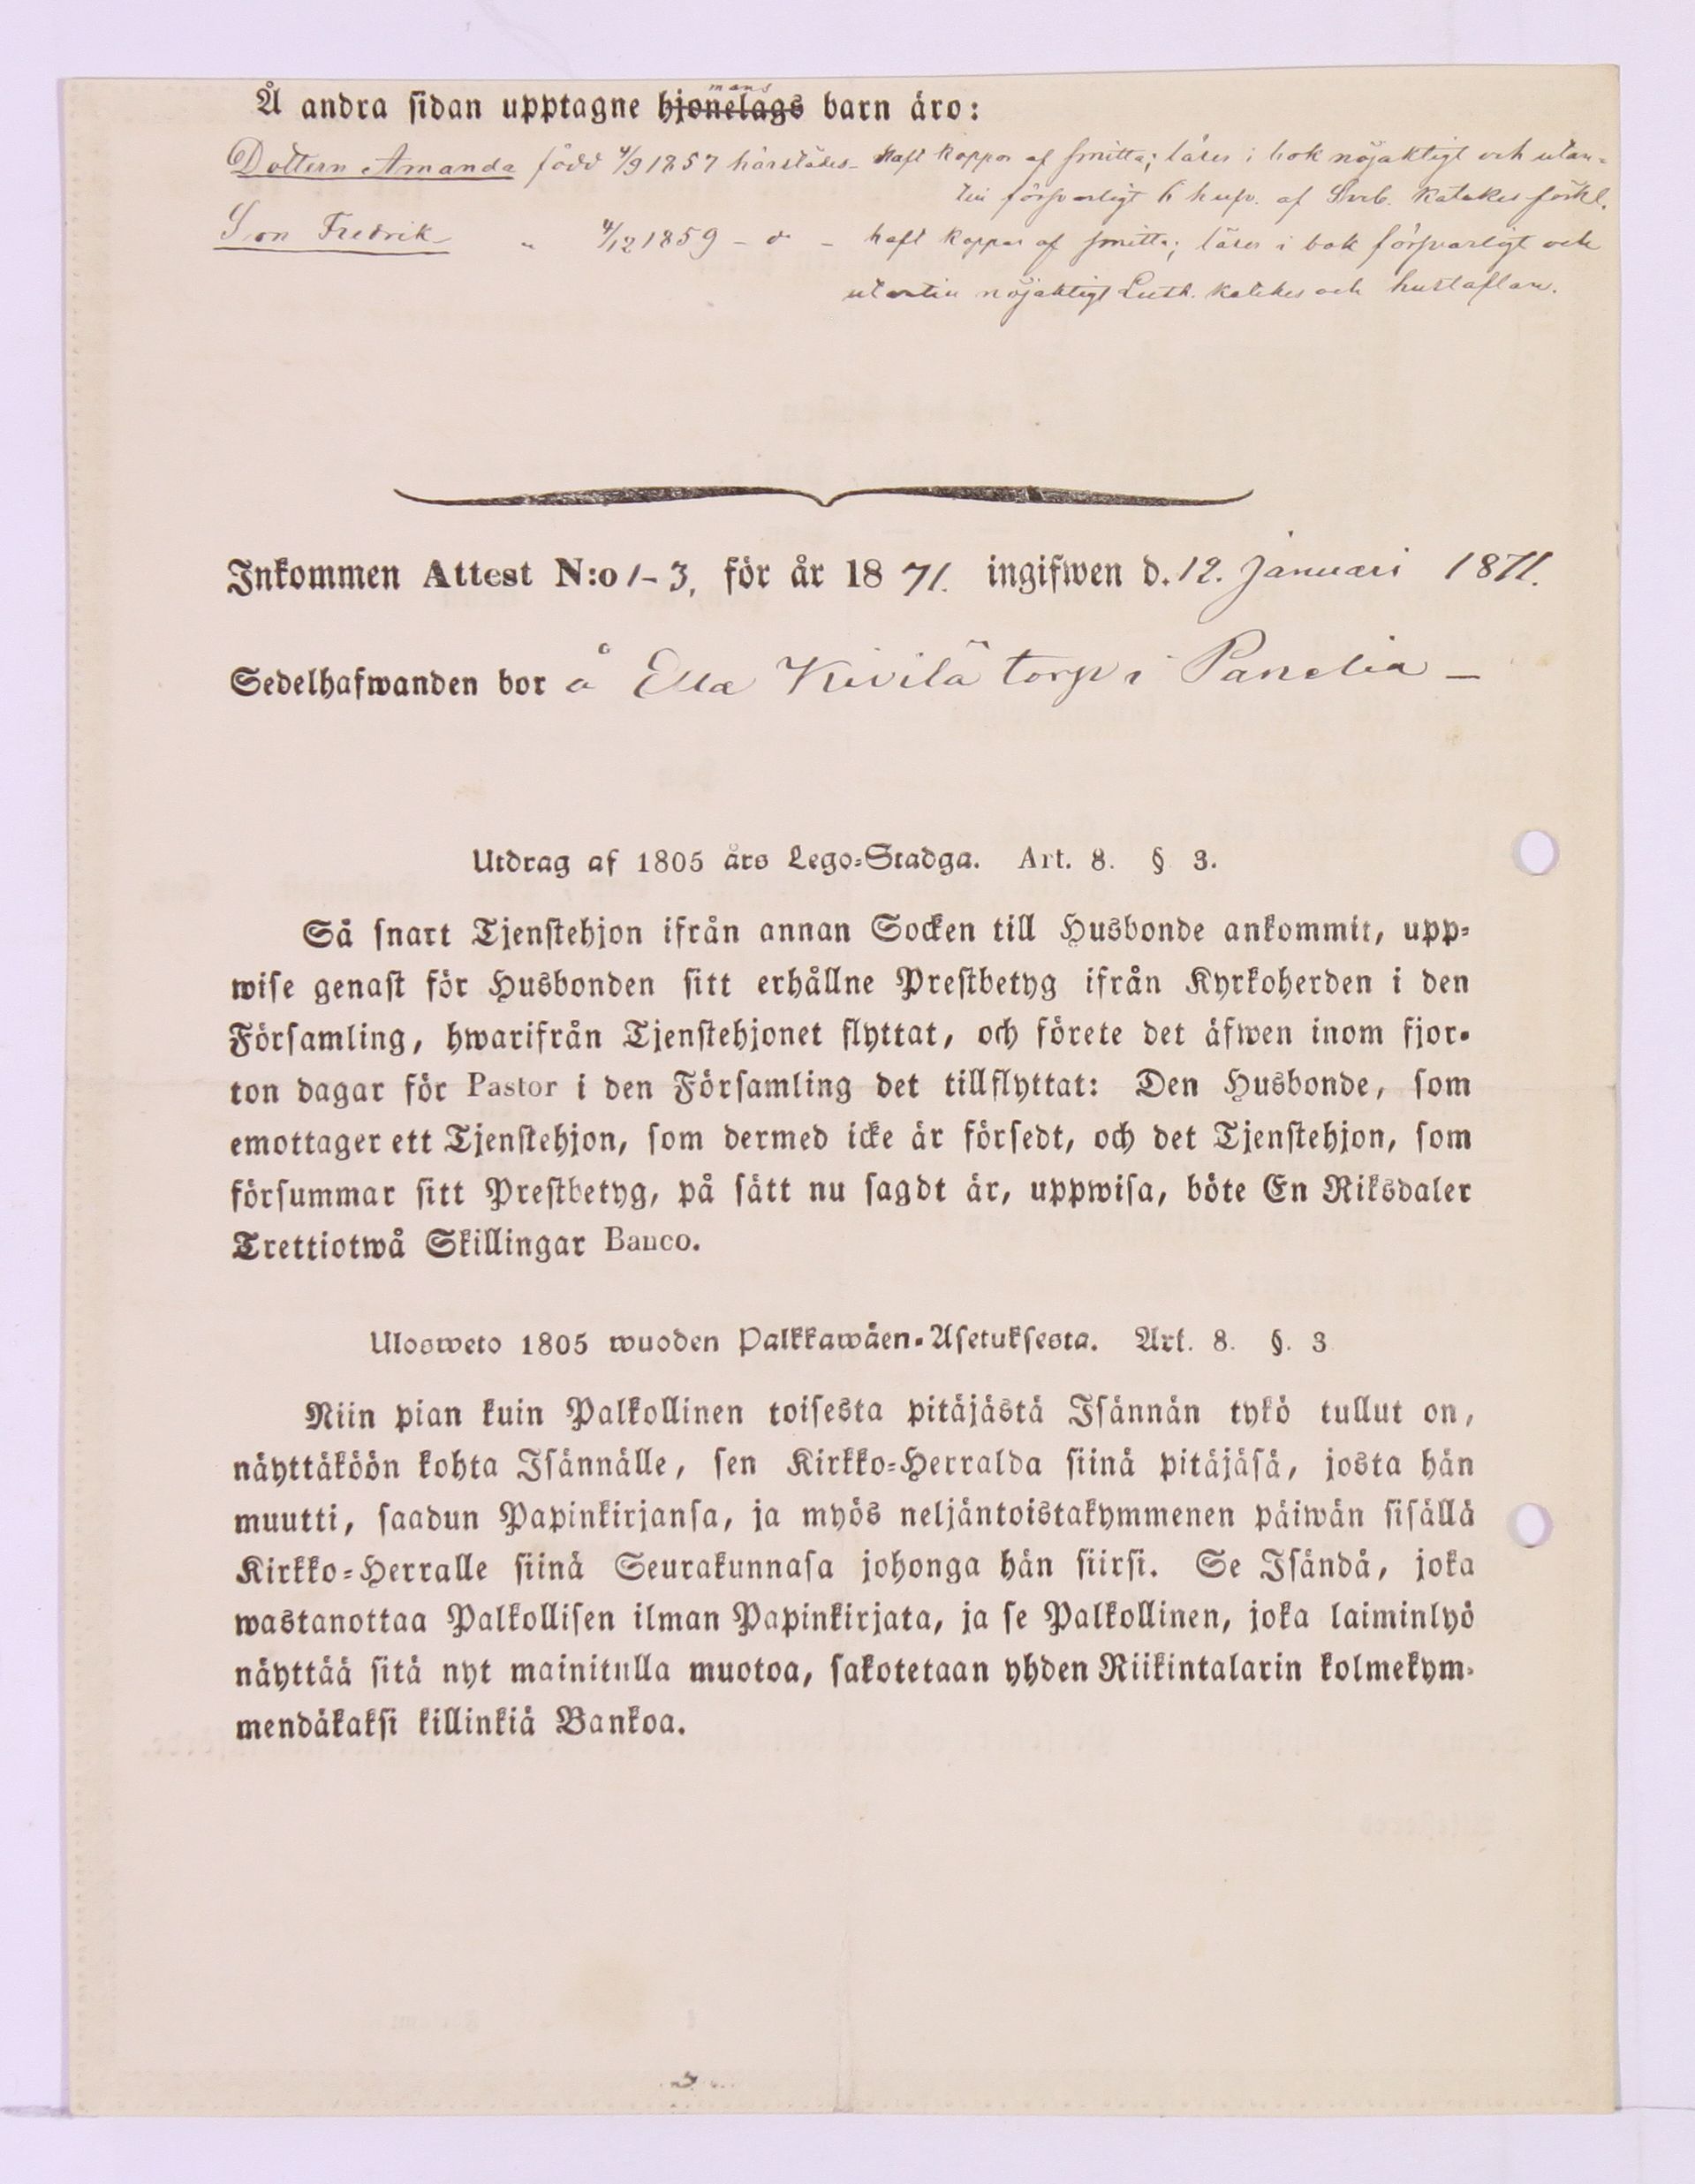 Å andra sidan upptagne hjonelags mans barn äro:
Dottern Amanda född 4/9 1857 härstädes – haft koppor af smitta; läser i bok nöjaktigt och utan-
till försvarligt 6 hufv. af Sveb. katekes förkl.
Son Fredrik " 4/12 1859 – d:o – haft koppor af smitta; läser i bok försvarligt och
utantill nöjaktigt Luth. katekes och hustaflan.
Inkommen Attest N:o 1–3, för år 1871. ingifwen d. 12. Januari 1871.
Sedelhafwanden bor å Ella Kivilä torp i Panelia –
Utdrag af 1805 års Lego-Stadga. Art. 8. § 3.
Så snart Tjenstehjon ifrån annan Socken till Husbonde ankommit, upp-
wise genast för Husbonden sitt erhållne Prestbetyg ifrån Kyrkoherden i den
Församling, hwarifrån Tjenstehjonet flyttat, och förete det äfwen inom fjor-
ton dagar för Pastor i den Församling det tillflyttat: Den Husbonde, som
emottager ett Tjenstehjon, som dermed icke är försedt, och det Tjenstehjon, som
försummar sitt Prestbetyg, på sätt nu sagdt är, uppwisa, böte En Riksdaler
Trettiotwå Skillingar Banco.
Ulosweto 1805 wuoden Palkkawäen-Asetuksesta. Art. 8. §. 3
Niin pian kuin Palkollinen toisesta pitäjästä Isännän tykö tullut on,
näyttäköön kohta Isännälle, sen Kirkko-Herralda siinä pitäjäsä, josta hän
muutti, saadun Papinkirjansa, ja myös neljäntoistakymmenen päiwän sisällä
Kirkko-Herralle siinä Seurakunnasa johonga hän siirsi. Se Isändä, joka
wastanottaa Palkollisen ilman Papinkirjata, ja se Palkollinen, joka laiminlyö
näyttää sitä nyt mainitulla muotoa, sakotetaan yhden Riikintalarin kolmekym-
mendäkaksi killinkiä Bankoa.